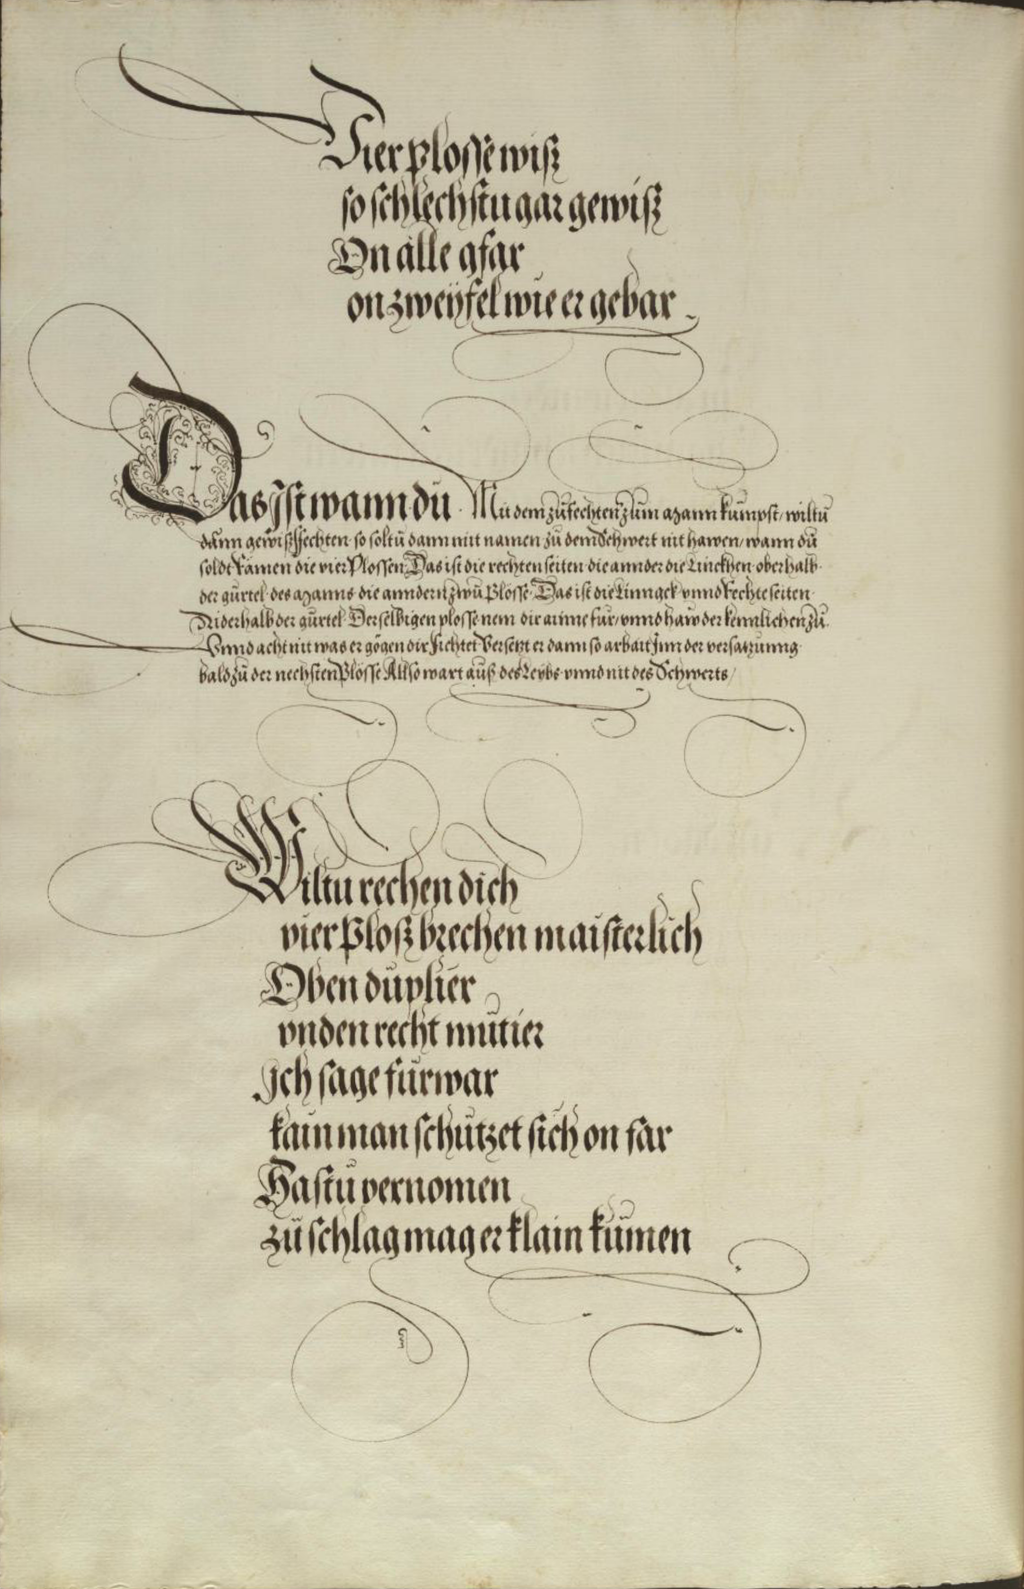 Vier plosse wiß
so schlechstu gar gewiß
On alle gfar
on zweyfel wie er gebar
Das Ist wann dŭ Mit dem zŭfechten zŭm Mann kumpst / wiltŭ
dann gewiß fechten so soltŭ dann mit namen zŭ dem Schwert nit hawen / wann dŭ
soldt Ramen die vier Plossen Das ist die rechten seiten die annder die Linckhen oberhalb
der gŭrtel des Manns die anndern zwŭ Plosse Das ist die Linngck vnnd Rechte seiten
Niderhalb der gŭrtel Derselbigen plosse nem dir ainne für / vnnd haw der kennlichen zŭ
Vnnd acht nit was er gögen dir fichtet Versetzt er dann so arbait Inn der versatzunng
bald zŭ der nechsten Plosse Allso wart aŭß des Leybs vnnd nit des Schwerts /
Wiltu rechen dich
vier Ploß brechen maisterlich
Oben dŭplier
vnden recht mŭtier
Ich sage fŭrwar
kain man schŭtzet sich on far
Hastŭ vernomen
zŭ schlag mag er klain kŭmen